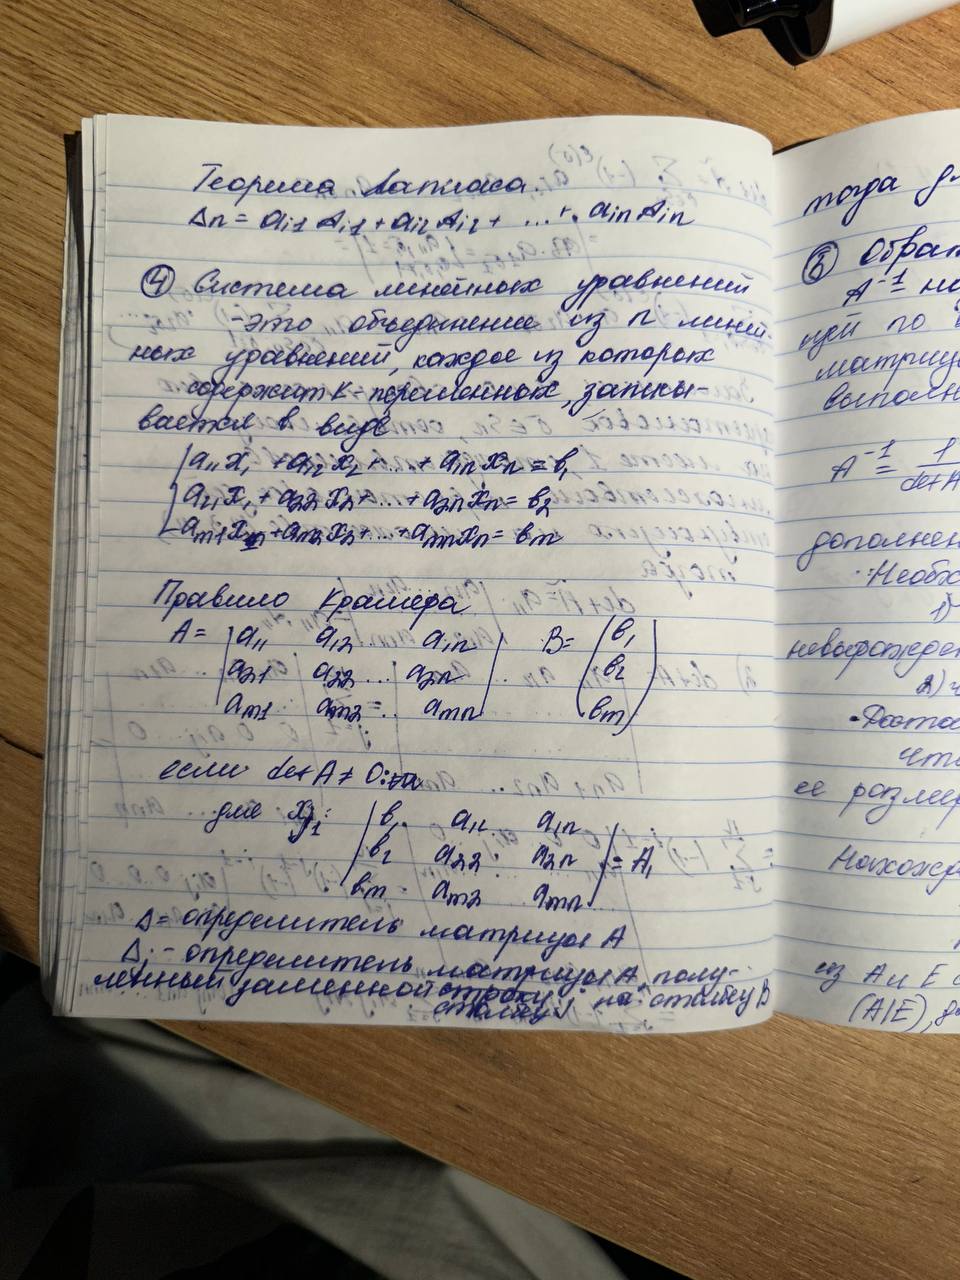 Теорема Лапласа.
Δn = ai1 Ai1 + ai2 Ai2 + ... + ain Ain
④ Система линейных уравнений
-это объединение из n линей-
ных уравнений, каждое из которых
содержит k-переменных, записы-
вается в виде
a11x1 + a12x2 + ... + a1nxn = b1
a21x1 + a22x2 + ... + a2nxn = b2
am1xm + am2x2 + ... + amnxn = bm
Правило Крамера
A = a11 a12 a1n B = b1
a21 a22 ... a2n b2
am1 am2 = .. amn bm
если det A ≠ 0:
для xj1: b1 a12 a1n
b2 a22 a2n = A1
bm am2 amn
Δ = определитель матрицы A
Δj - определитель матрицы A, полу-
ченный заменной строку на столбец B
столбец j
тогда
⑤ Обрат
A⁻¹ = на
цей по
матрицы
выполн
A⁻¹ = 1
det A
дополнен
Необх
1)
невырожден
2) ч
Доста
что
ее размер
Нахожд
из A и E с
(A|E), д